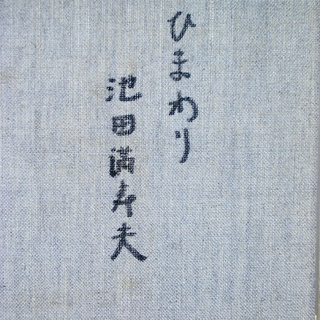 ひまわり
池田満寿夫